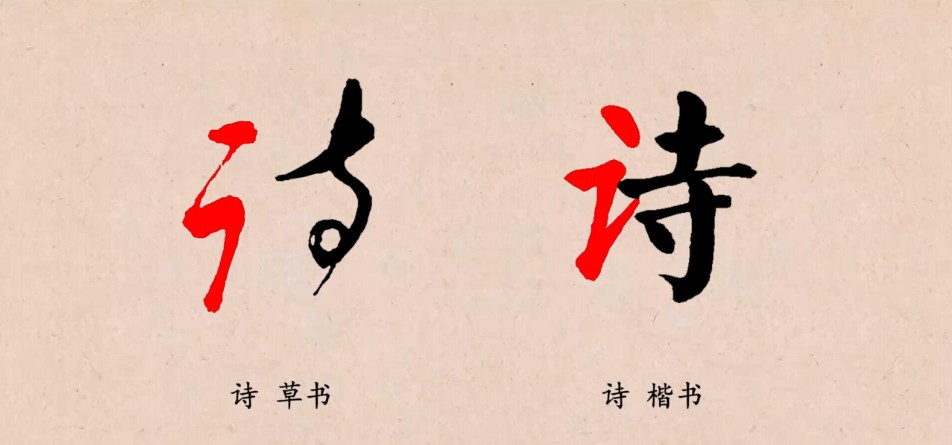 诗 诗
诗 草书
诗 楷书